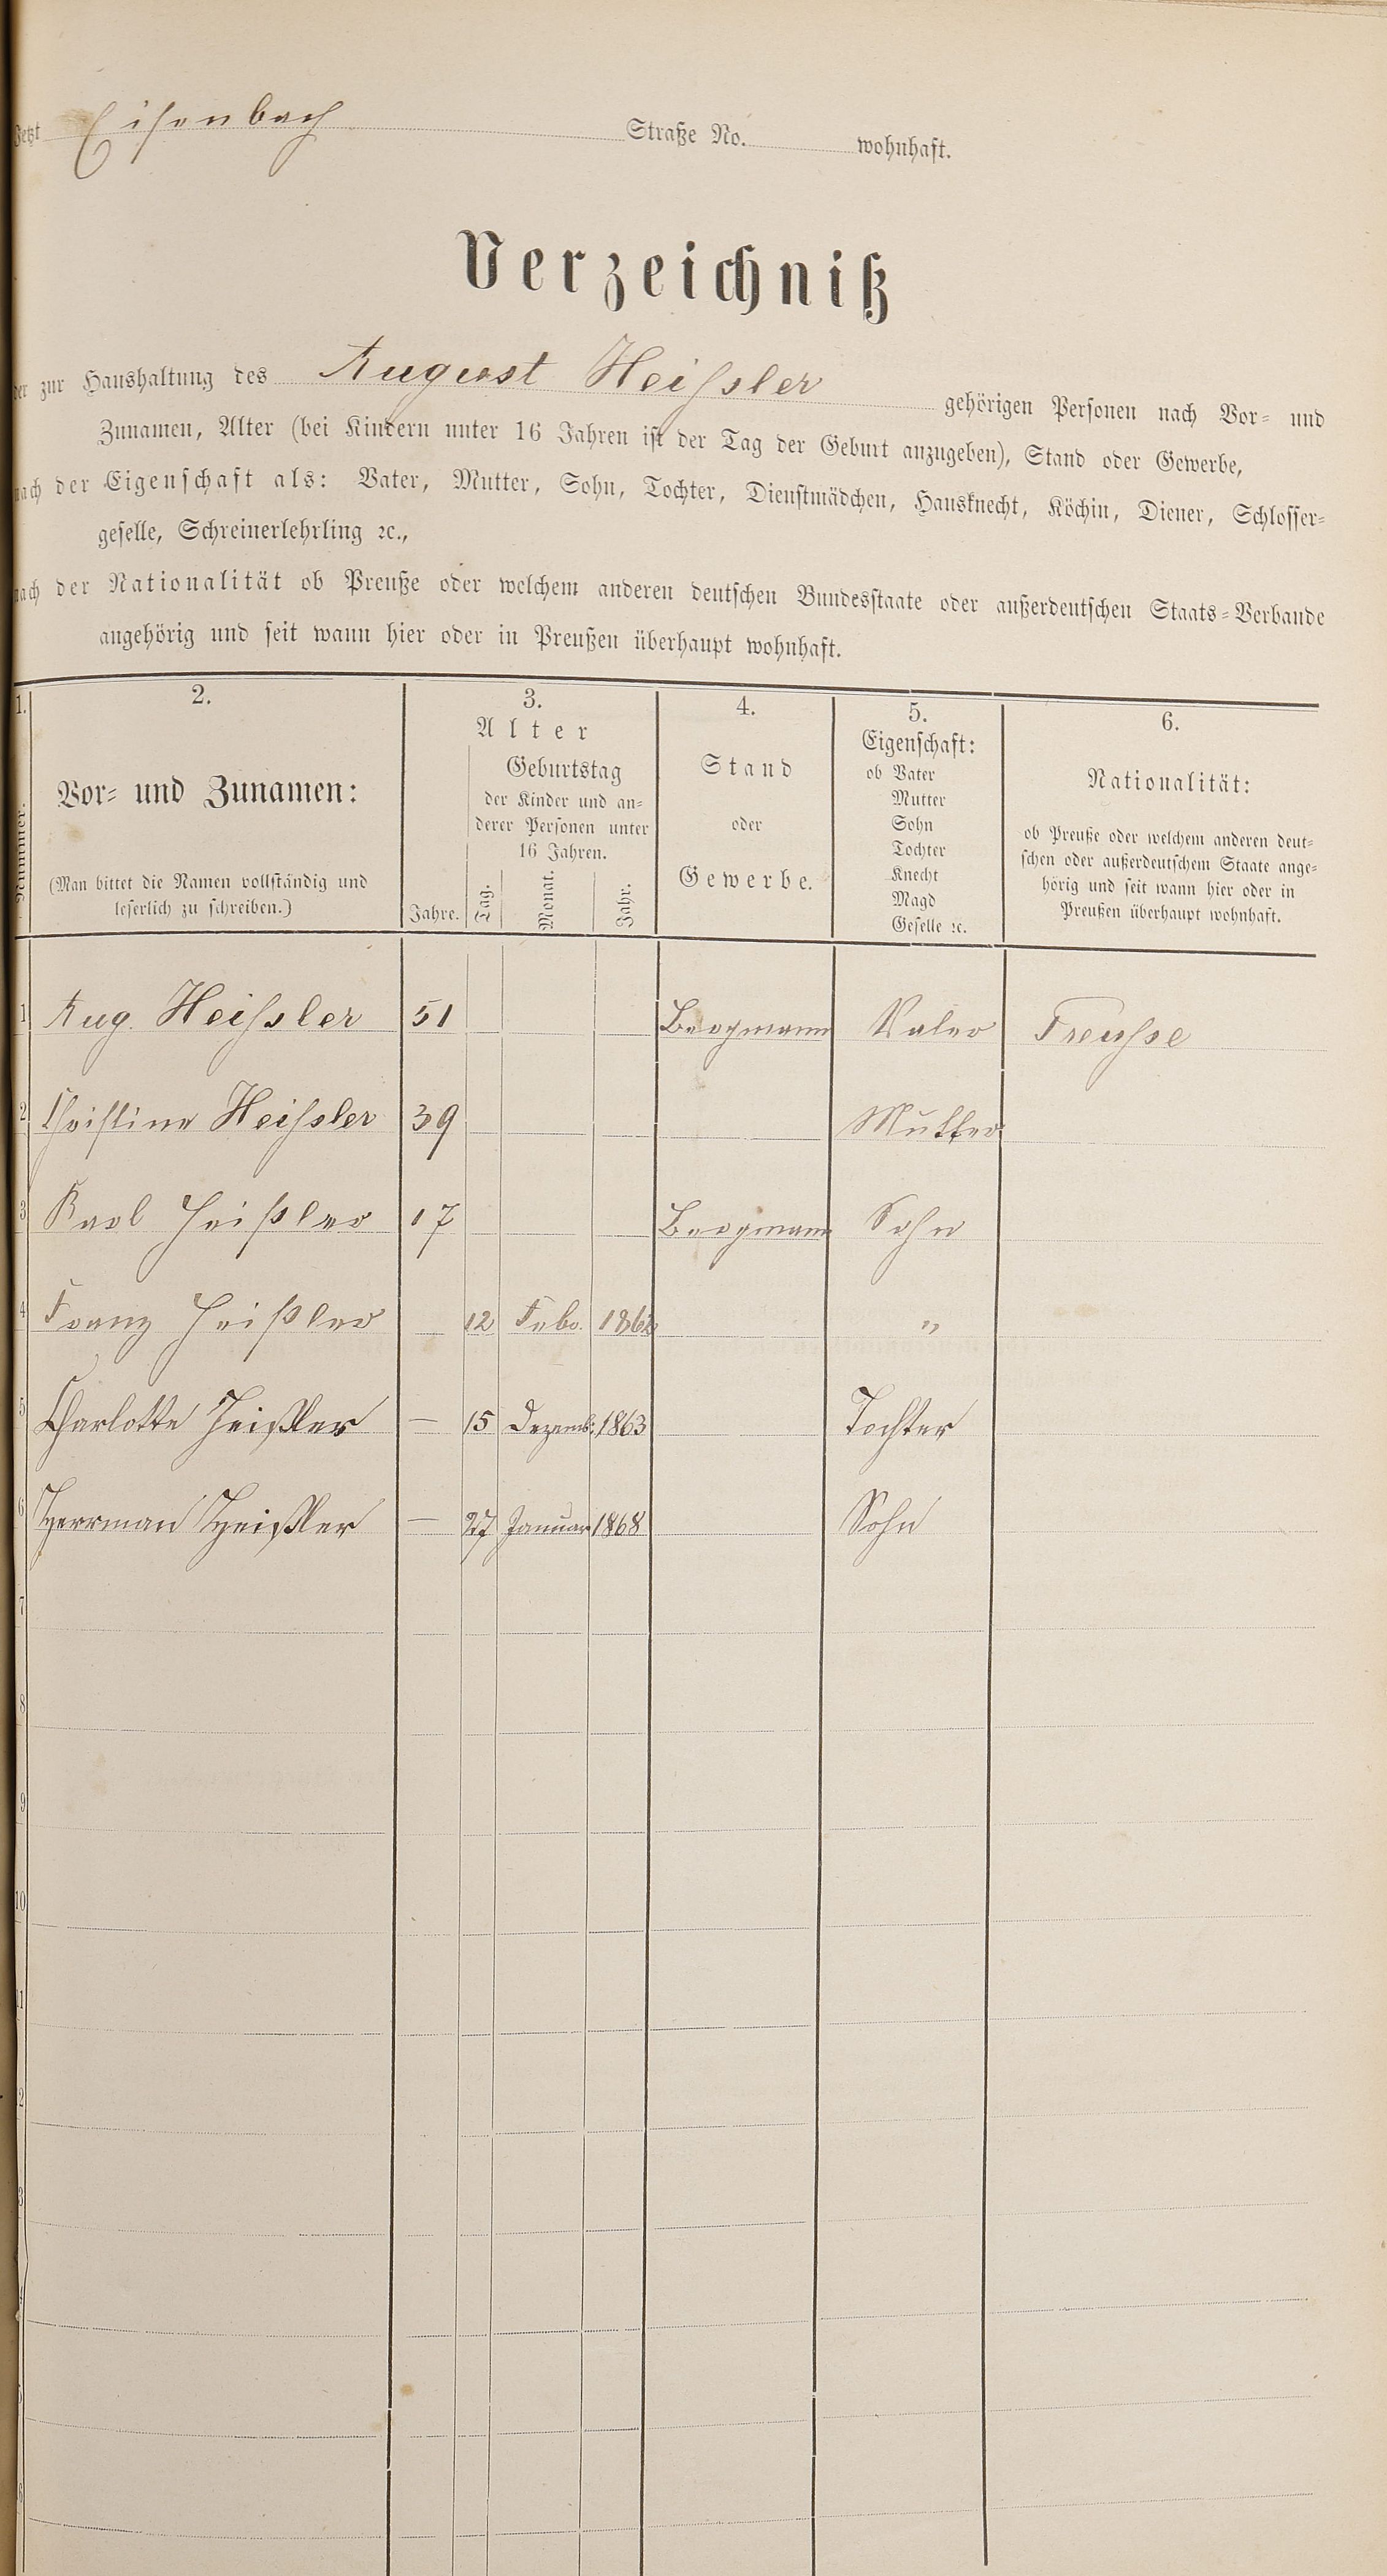 Jetzt Eisenbach Straße No. wohnhaft.
Verzeichniß
der zur Haushaltung des August Heissler gehörigen Personen nach Vor- und
Zunamen, Alter (bei Kindern unter 16 Jahren ist der Tag der Geburt anzugeben), Stand oder Gewerbe,
nach der Eigenschaft als: Vater, Mutter, Sohn, Tochter, Dienstmädchen, Hausknecht, Köchin, Diener, Schlosser-
geselle, Schreinerlehrling ꝛc.,
nach der Nationalität ob Preuße oder welchem anderen deutschen Bundesstaate oder außerdeutschen Staats-Verbande
angehörig und seit wann hier oder in Preußen überhaupt wohnhaft.
1. 2. 3. 4. 5. 6.
Nummer.
Vor- und Zunamen:
(Man bittet die Namen vollständig und
leserlich zu schreiben.)
Alter
Jahre.
Geburtstag
der Kinder und an-
derer Personen unter
16 Jahren.
Tag. Monat. Jahr.
Stand
oder
Gewerbe.
Eigenschaft:
ob Vater
Mutter
Sohn
Tochter
Knecht
Magd
Geselle ꝛc.
Nationalität:
ob Preuße oder welchem anderen deut-
schen oder außerdeutschem Staate ange-
hörig und seit wann hier oder in
Preußen überhaupt wohnhaft.
1 Aug. Heissler 51 Bergmann Vater Preusse
2 Christine Heissler 39 Mutter
3 Karl Heißler 17 Bergmann Sohn
4 Franz Heißler 12 Febr. "
5 Charlotte Heißler — 15 Dezemb: 1863 Tochter
6 Herrman Heißler — 27 Januar 1868 Sohn
7
8
9
10
11
12
13